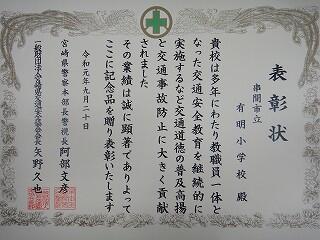 表彰状
串間市立
有明小学校 殿
貴校は多年にわたり教職員一体と
なった交通安全教育を継続的に
実施するなど交通道徳の普及高揚
と交通事故防止に大きく貢献
されました
その業績は誠に顕著でありよって
ここに記念品を贈り表彰いたします
令和元年九月二十日
宮崎県警察本部長警視長 阿部文彦
一般財団法人宮崎県交通安全協会会長 矢野久也